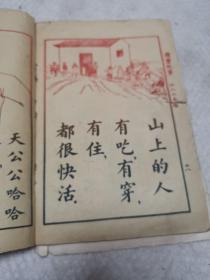 山上的人
有吃,有穿,
有住,
都很快活,
二
天公公哈哈